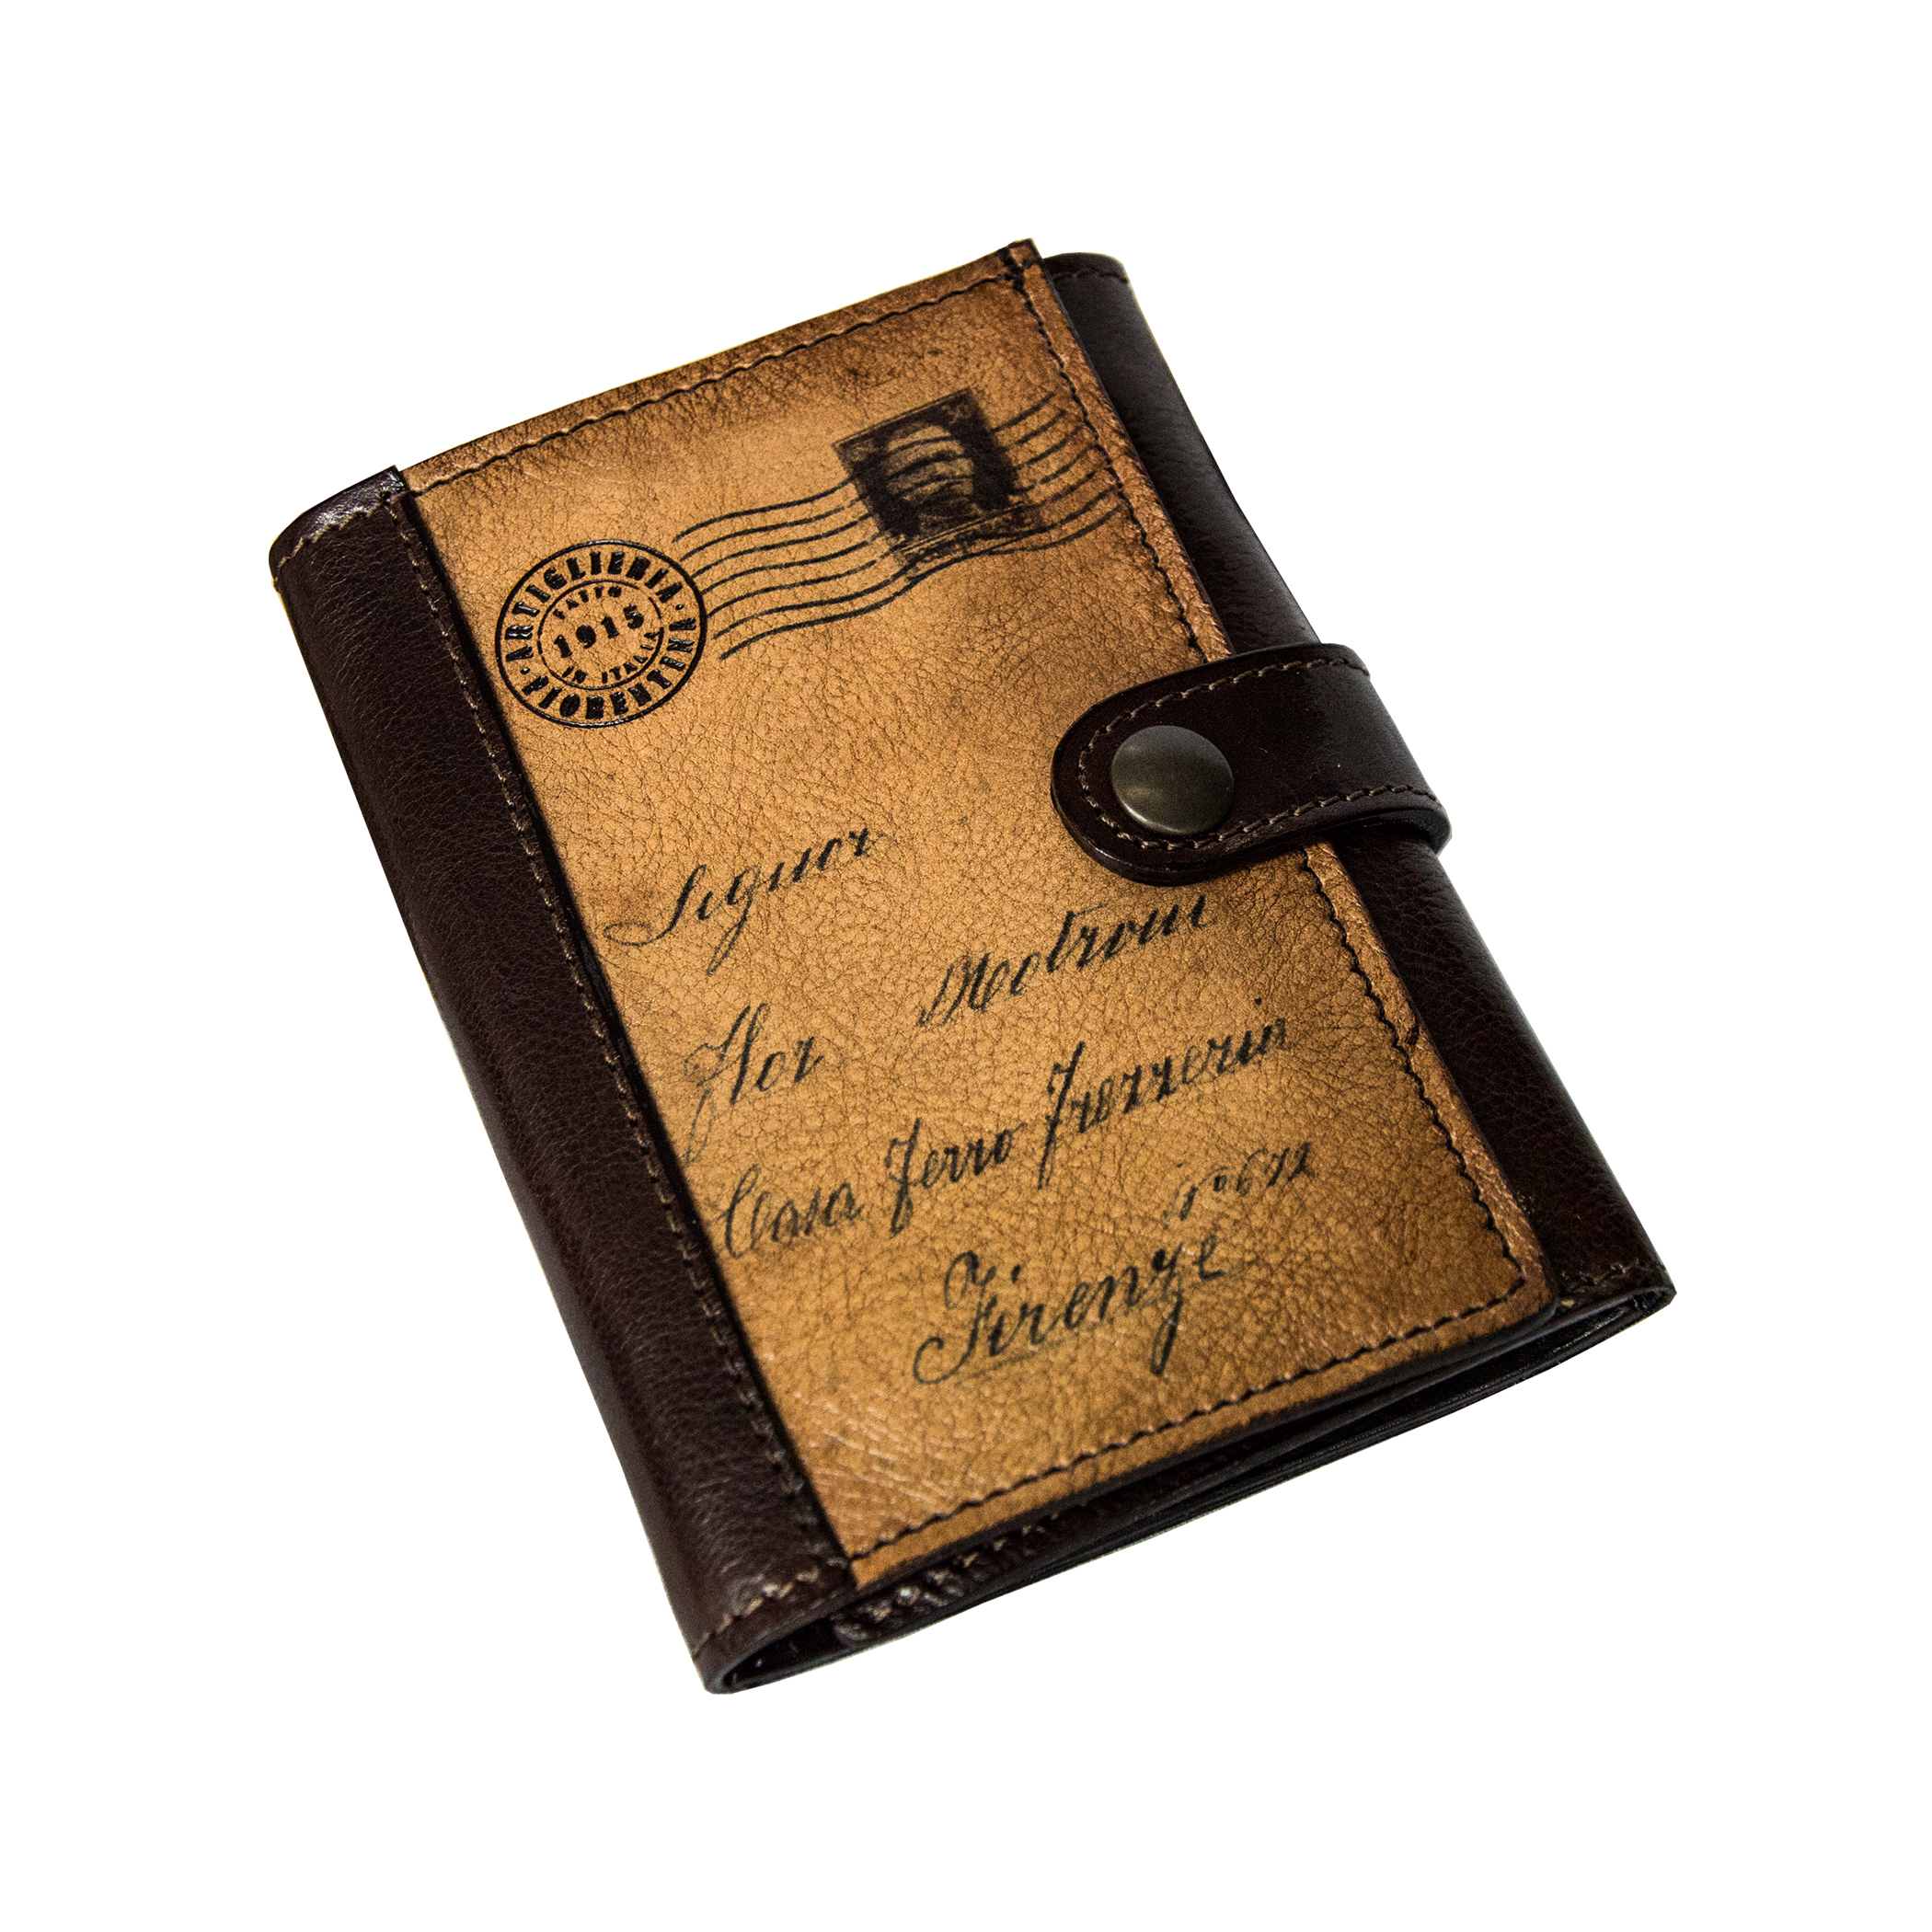 ARTIGLIERIA
FATTO
1915
IN ITALIA
FIORENTINA
Signor
Flor
Casa Ferro Frezzeria
N° 672
Firenze